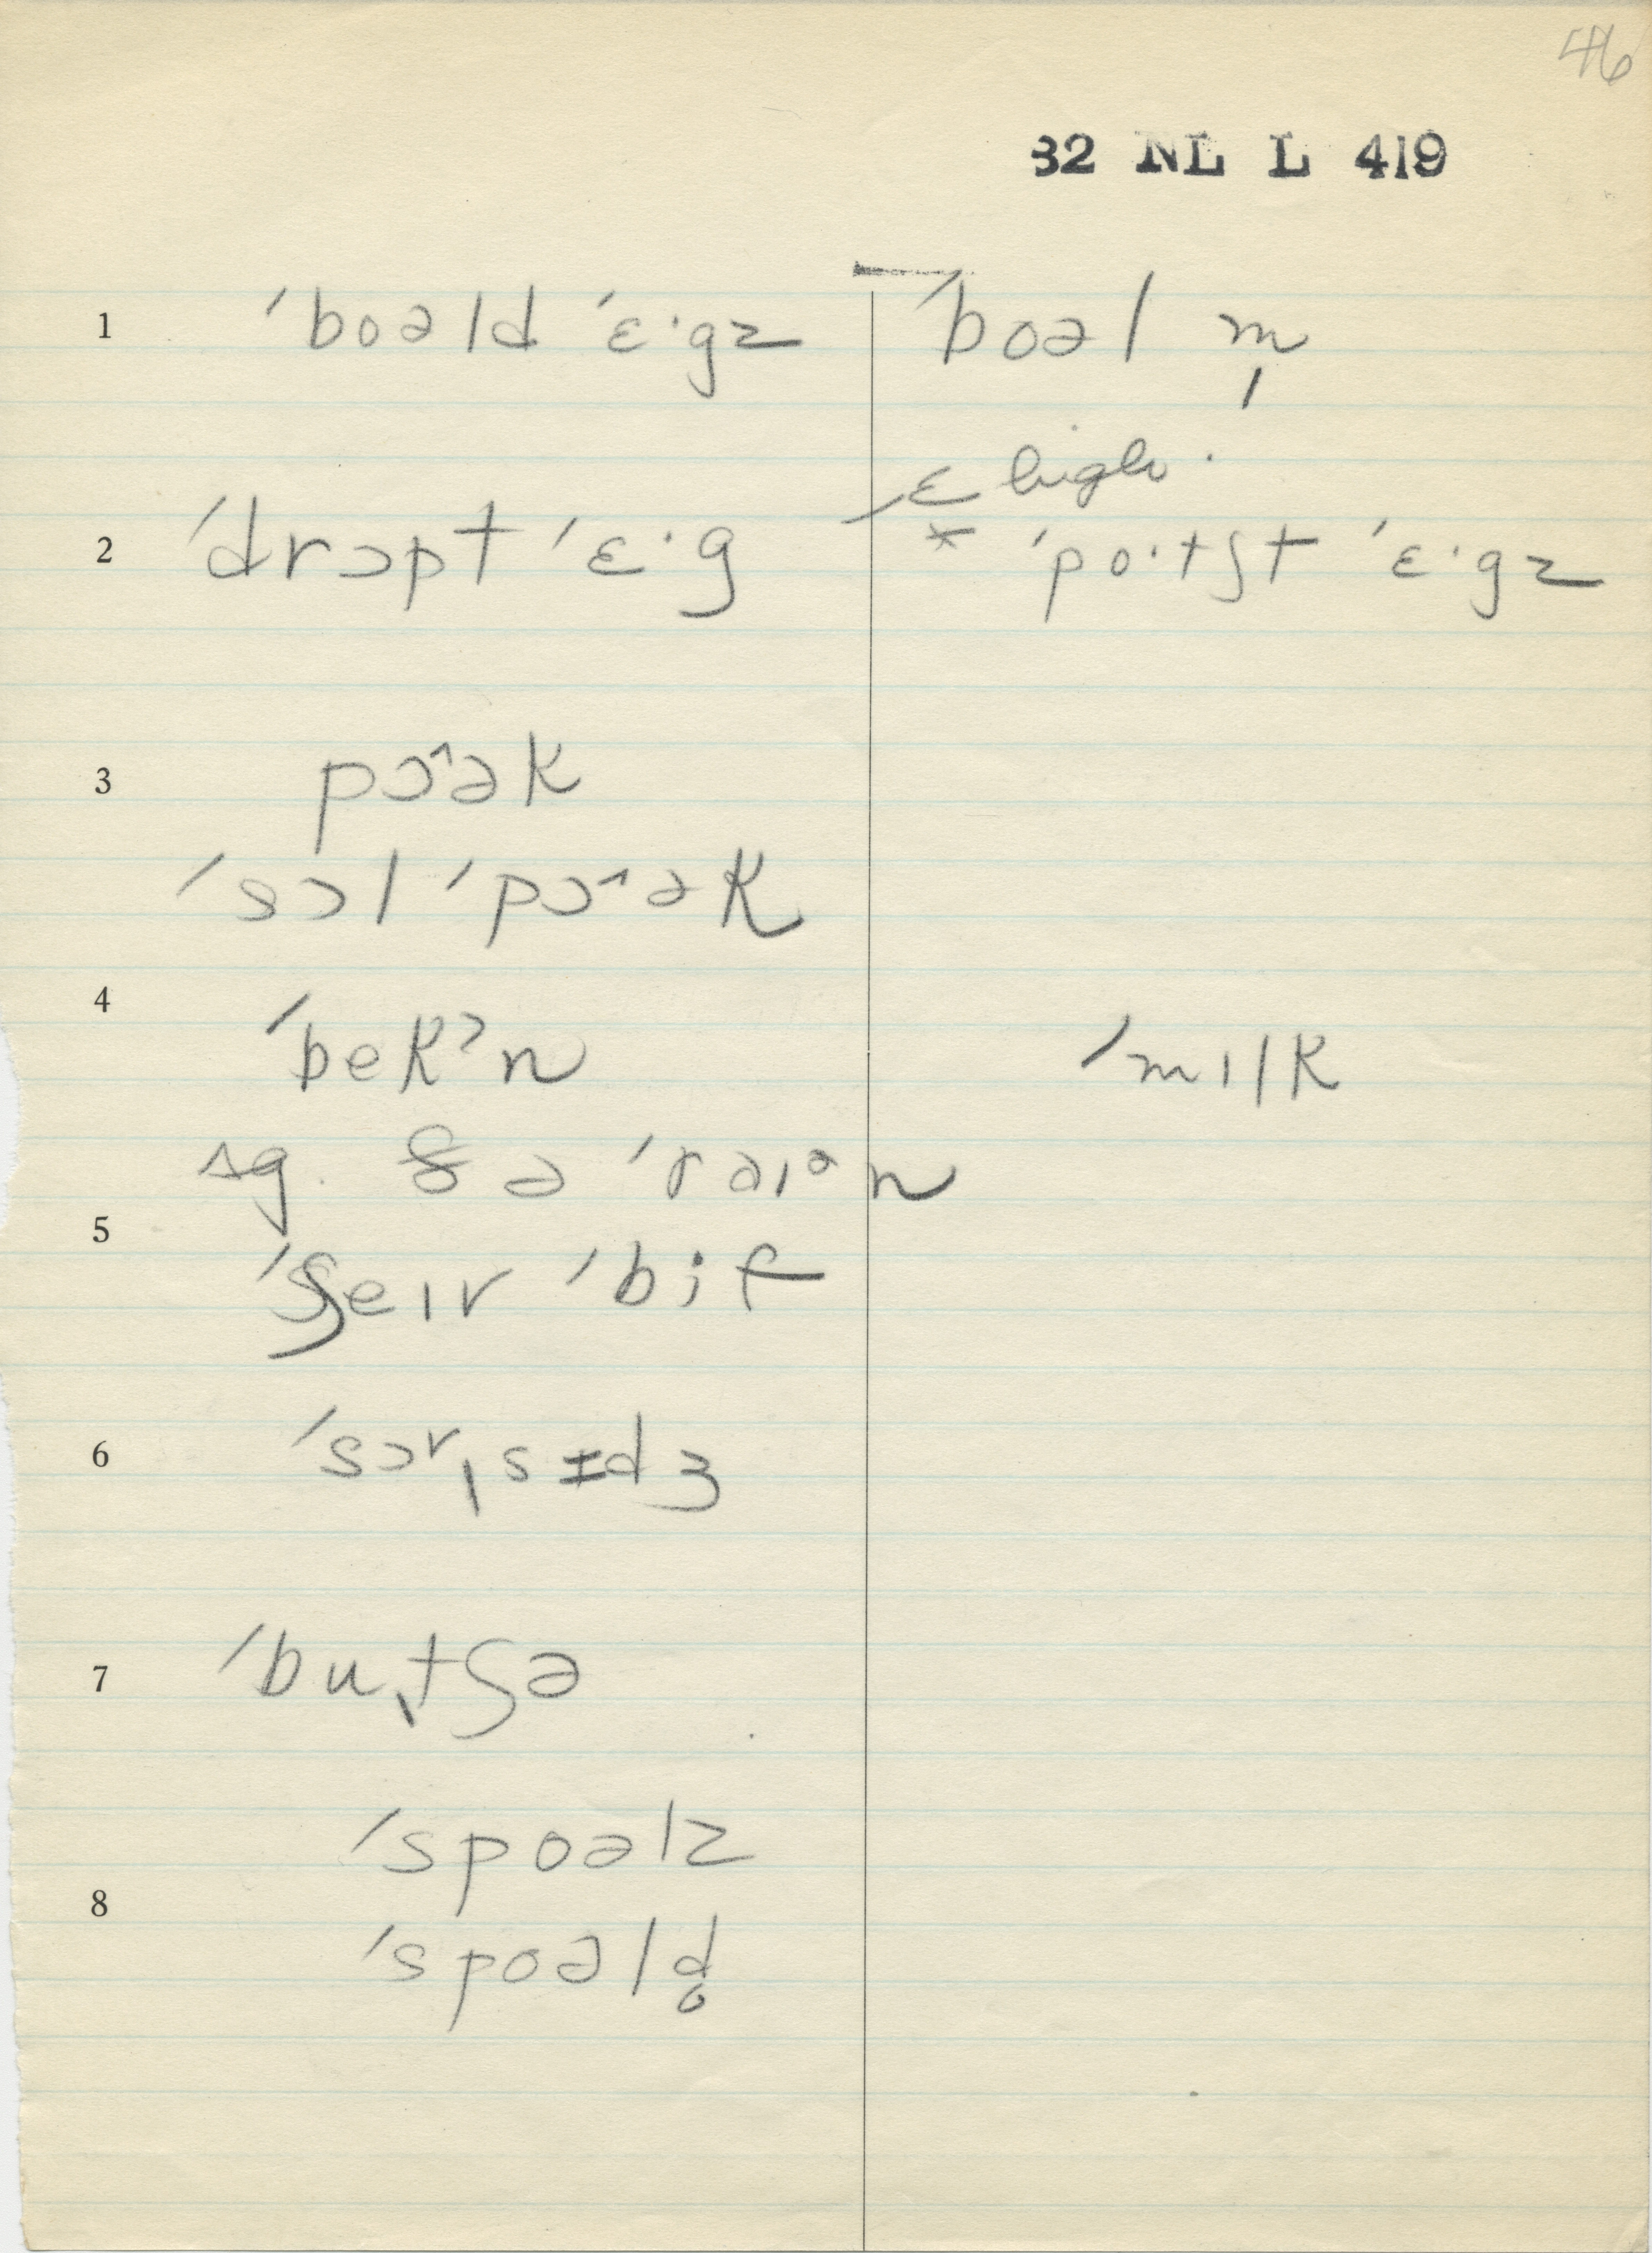 46
32 NL L 419
1 ˈboəld ˈɛ·gz ˈboəl m̩
ɛ high.
2 ˈdrɔpt ˈɛ·g * ˈpo·tʃt ˈɛ·gz
3 pɔ^ək
ˈsɔl ˈpɔ^ək
4 ˈbekᵊn ˈmɪlk
sg. ə ˈrəɪᵊn
5 ˈʃeɪr ˈbif
6 ˈsɔʳˌsɪdʒ
7 ˈbuˌtʃə
ˈspoəlz
8 ˈspoəld̥